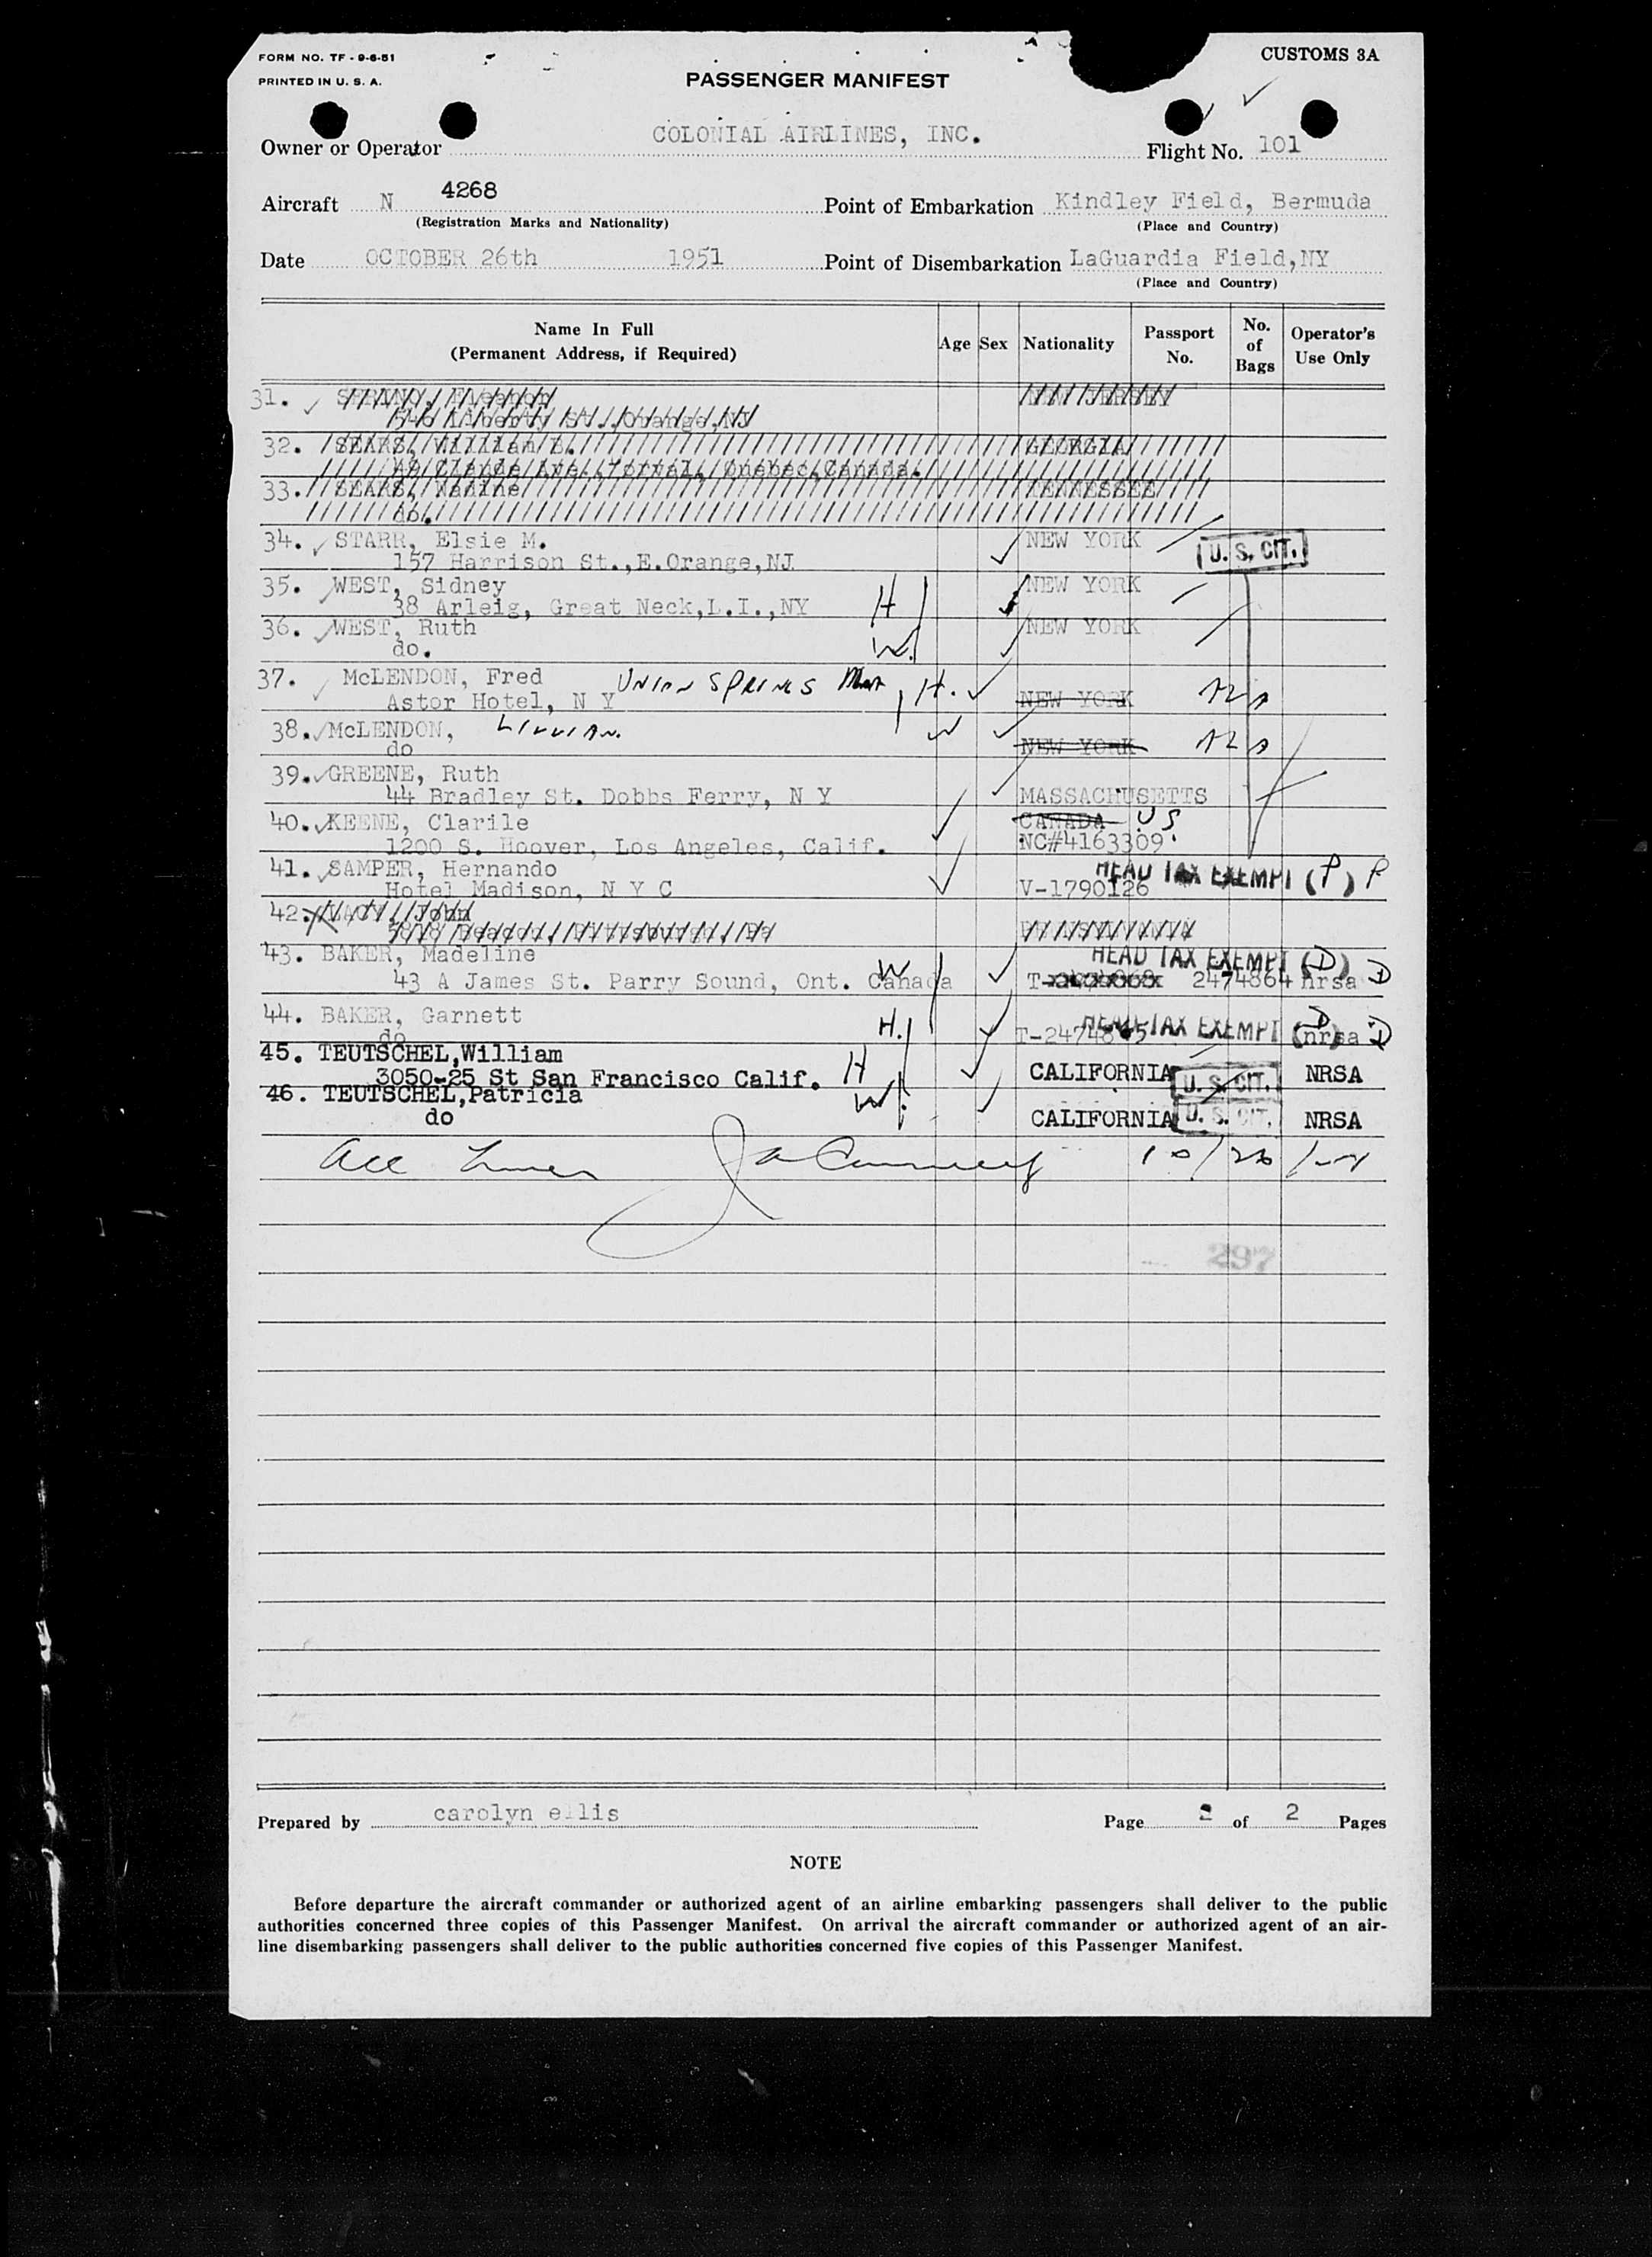 FORM NO. TF - 9-6-51
PRINTED IN U. S. A.
CUSTOMS 3A
PASSENGER MANIFEST
Owner or Operator COLONIAL AIRLINES, INC. Flight No. 101
Aircraft N 4268 Point of Embarkation Kindley Field, Bermuda
(Registration Marks and Nationality) (Place and Country)
Date OCTOBER 26th 1951 Point of Disembarkation LaGuardia Field,NY
(Place and Country)
Name In Full
(Permanent Address, if Required)
Age Sex Nationality Passport No. No. of Bags Operator's Use Only
31. Eleanor NEW JERSEY
Liberty St., Orange,NJ
32. SEARS, William B. GEORGIA
49 Claude Ave., Dorval, Quebec,Canada.
33. SEARS, Nadine TENNESSEE
do.
34. STARR, Elsie M. NEW YORK U. S. CIT.
157 Harrison St.,E.Orange,NJ
35. WEST, Sidney NEW YORK
38 Arleig, Great Neck,L.I.,NY H
36. WEST, Ruth NEW YORK
do. W.
37. McLENDON, Fred UNION SPRINGS H.
Astor Hotel, N Y NEW YORK
38. McLENDON, LILLIAN. W
do NEW YORK
39. GREENE, Ruth
44 Bradley St. Dobbs Ferry, N Y MASSACHUSETTS
40. KEENE, Clarile CANADA U S.
1200 S. Hoover, Los Angeles, Calif. NC#4163309
41. SAMPER, Hernando HEAD TAX EXEMPT (P) P
Hotel Madison, N Y C V-1790126
42. John
43. BAKER, Madeline HEAD TAX EXEMPT (D)
43 A James St. Parry Sound, Ont. Canada W T- 2474864 nrsa D
44. BAKER, Garnett H. HEAD TAX EXEMPT D
do T-2474865 nrsa D
45. TEUTSCHEL,William H
3050-25 St San Francisco Calif. CALIFORNIA U. S. CIT. NRSA
46. TEUTSCHEL,Patricia W.
do CALIFORNIA U. S. CIT. NRSA
All 10/26
297
Prepared by carolyn ellis Page 2 of 2 Pages
NOTE
Before departure the aircraft commander or authorized agent of an airline embarking passengers shall deliver to the public
authorities concerned three copies of this Passenger Manifest. On arrival the aircraft commander or authorized agent of an air-
line disembarking passengers shall deliver to the public authorities concerned five copies of this Passenger Manifest.